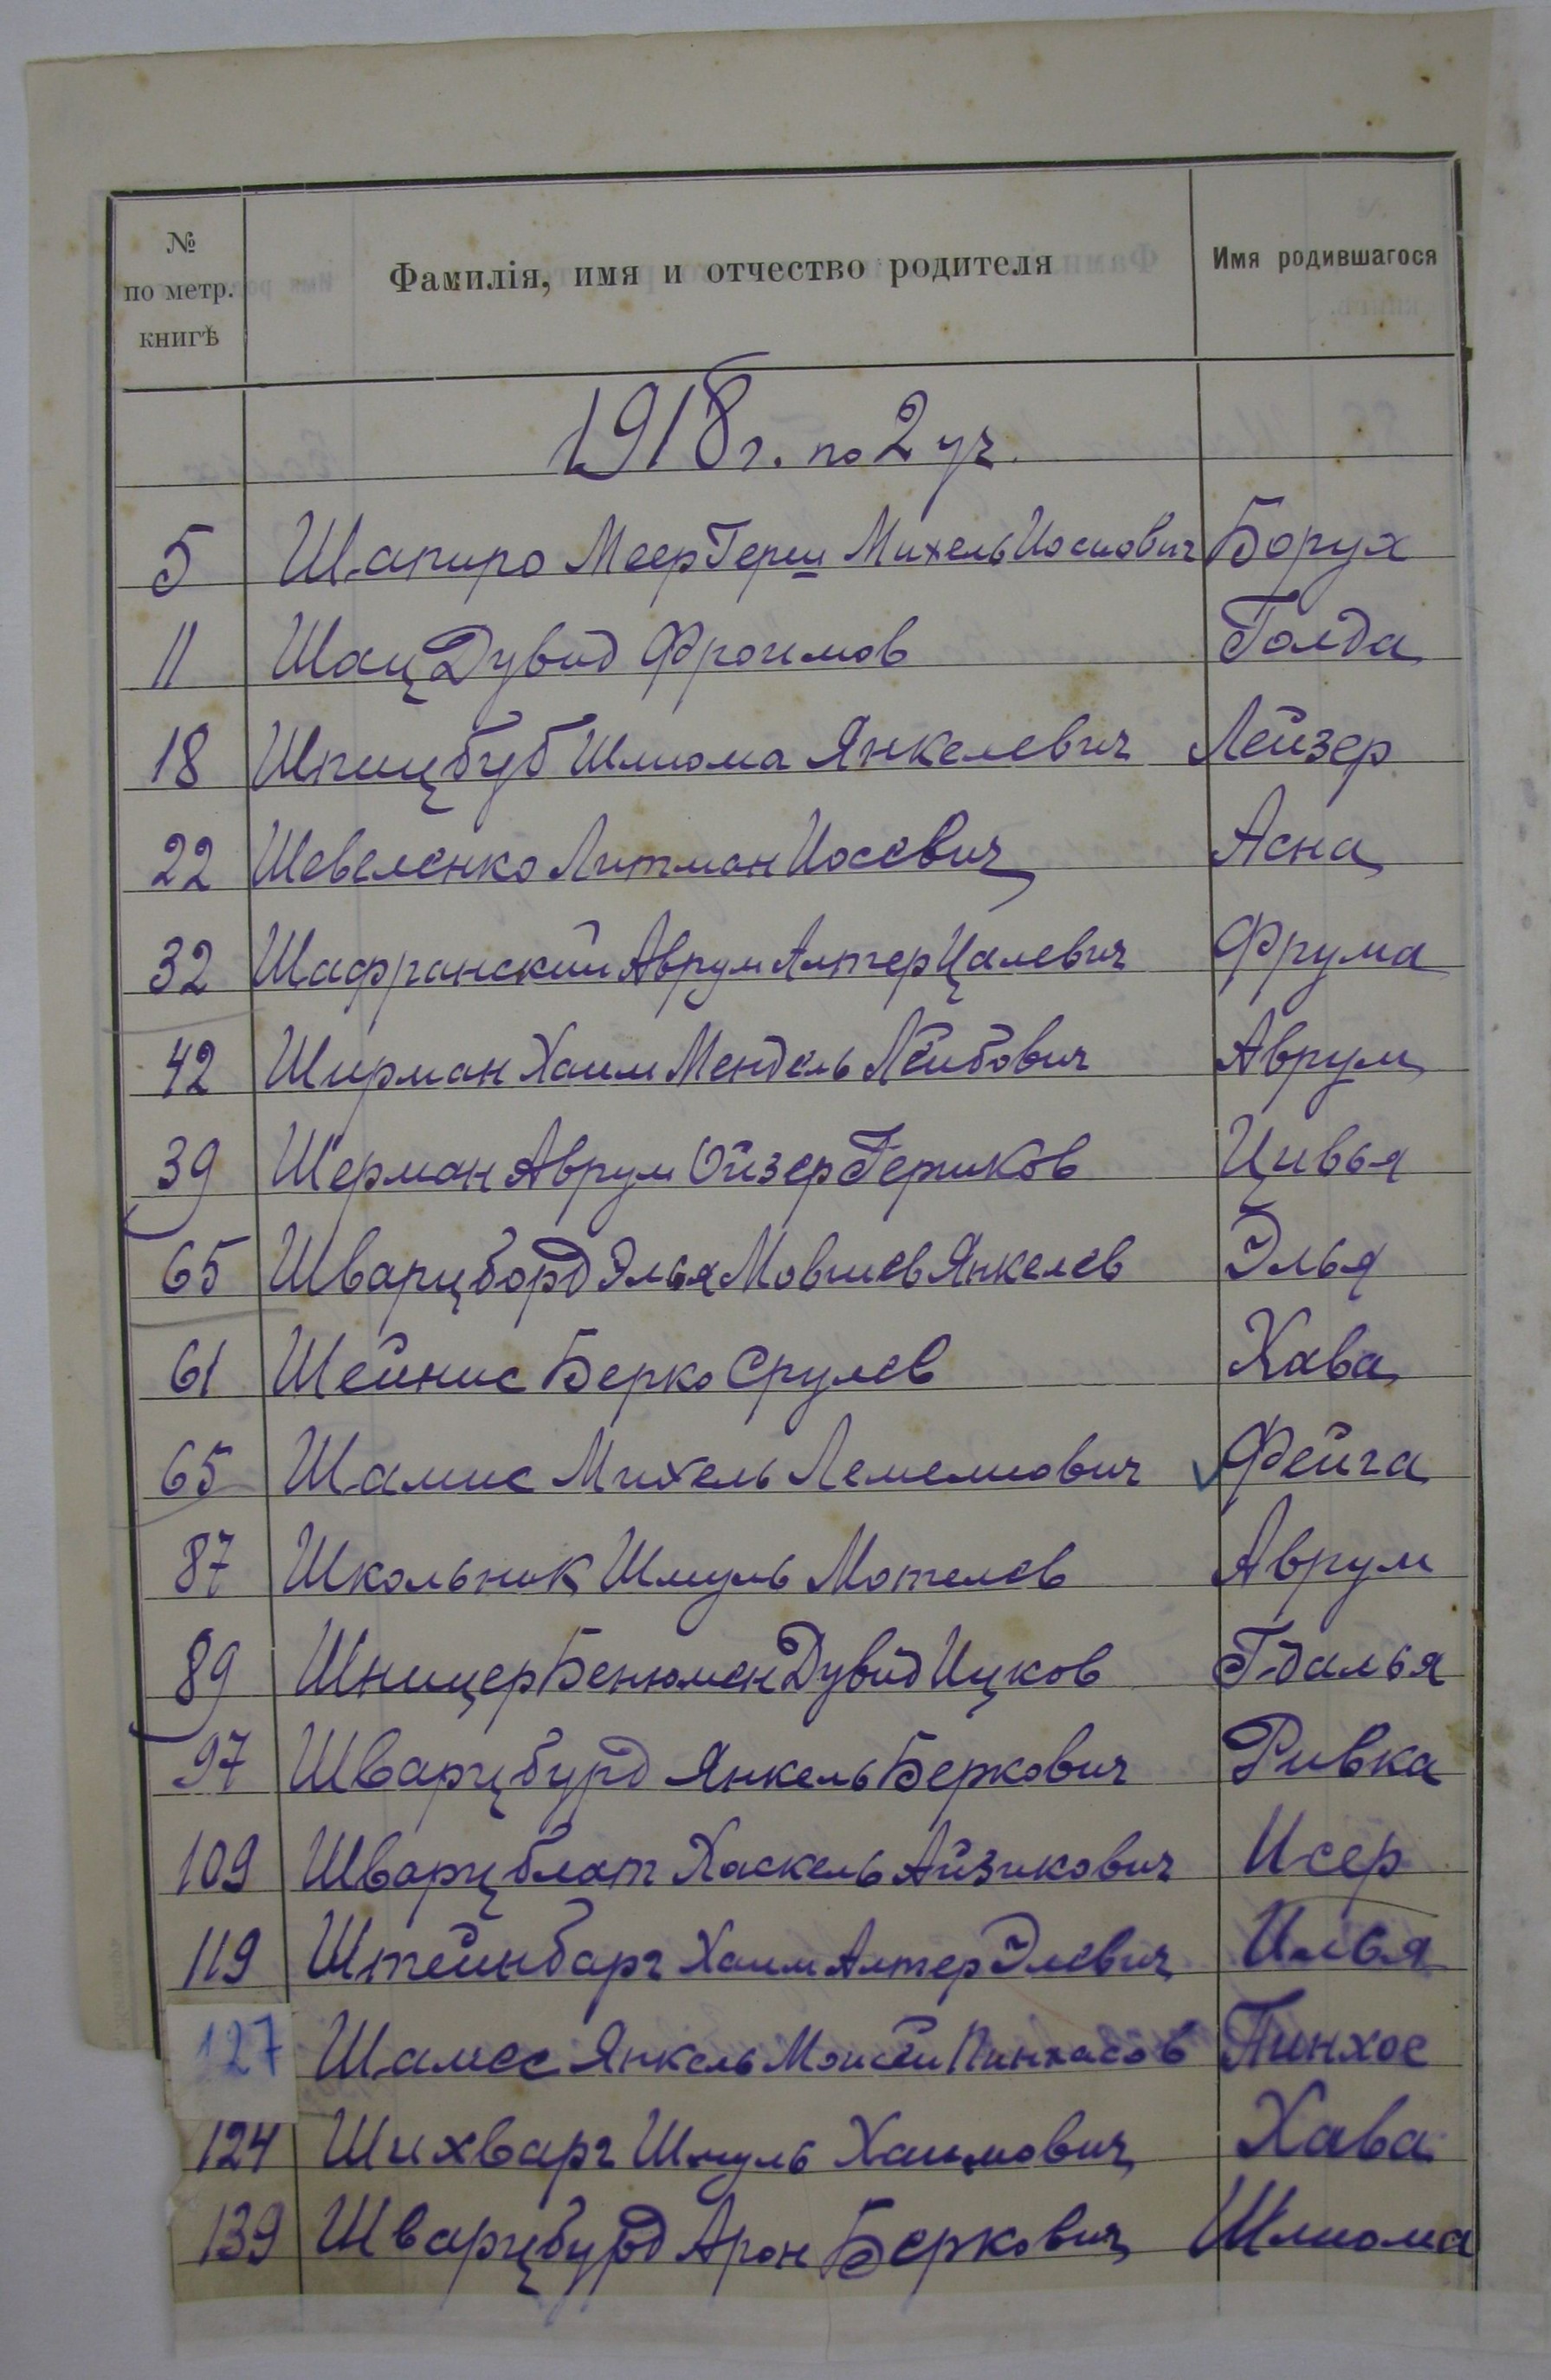 № по метр. книгѣ Фамилія, имя и отчество родителя Имя родившагося
1918 г. по 2 уч.
5 Шапиро Меер Герш Михель Иосиович Борух
11 Шац Дувид Фроимов Голда
18 Шпицбуб Шлиома Янкелевич Лейзер
22 Шевеленко Литман Иосевич Асна
32 Шафранский Аврум Алтер Цалевич Фрума
42 Ширман Хаим Мендель Лейбович Аврум
39 Шерман Аврум Ойзер Гершков Цивья
65 Шварцборд Элья Мовшев Янкелев Элья
61 Шейнис Берко Срулев Хава
65 Шамис Михель Лемелиович Фейга
87 Школьник Шмуль Мотелев Аврум
89 Шницер Бенюмен Дувид Ицков Гдалья
97 Шварцбурд Янкель Беркович Ривка
109 Шварцблат Хаскель Айзикович Исер
119 Штейнбарг Хаим Алтер Элевич Илья
127 Шамес Янкель Моисей Пинхасов Пинхос
124 Шихварг Шмуль Хаимович Хава
139 Шварцбурд Арон Беркович Шлиома